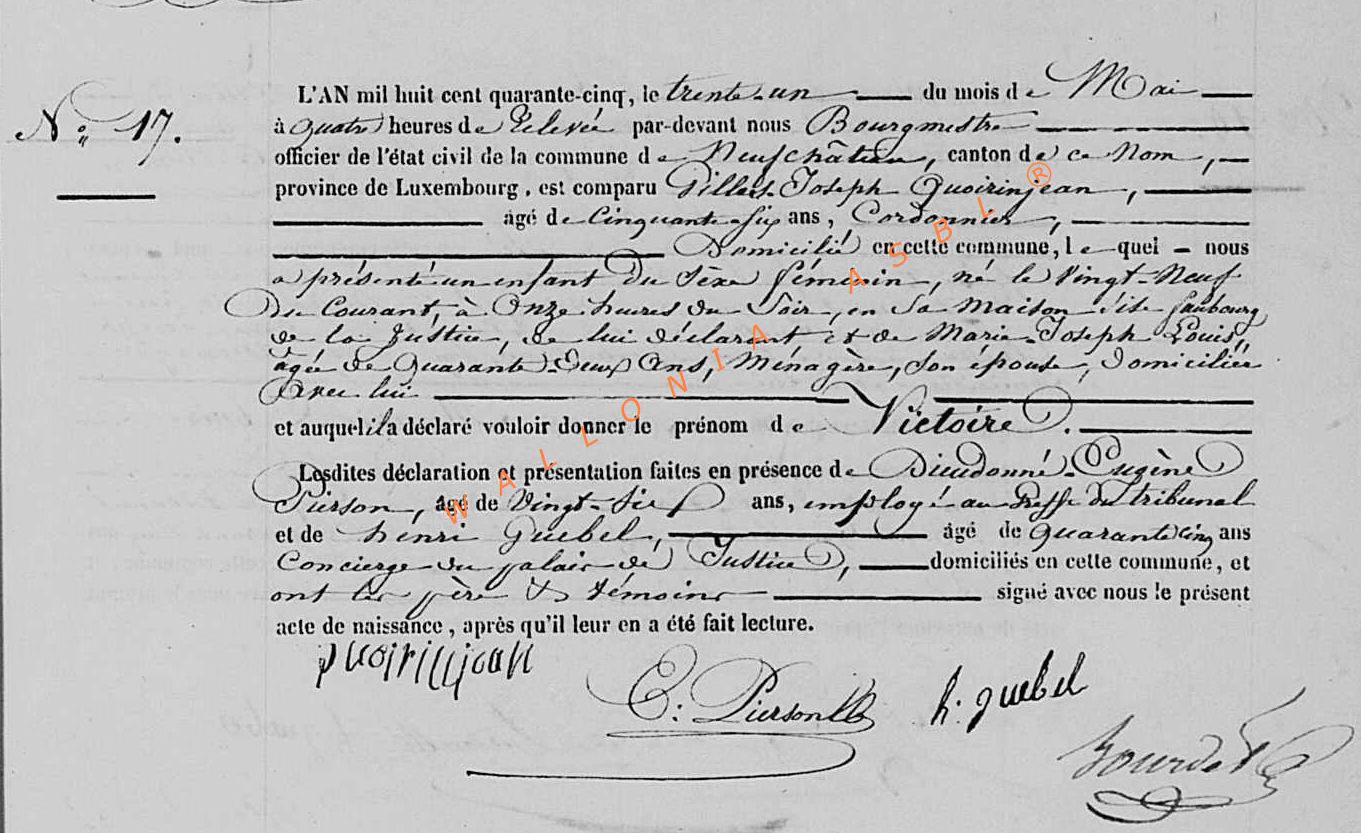 L'AN mil huit cent quarante-cinq, le trente-un du mois de Mai
N° 17.
à quatre heures de Relevée par-devant nous Bourgmestre
officier de l'état civil de la commune de Neufchâteau, canton de ce Nom,
province de Luxembourg, est comparu Gilles Joseph Quoirinjean,
âgé de Cinquante-six ans, Cordonnier,
Domicilié en cette commune, lequel nous
a présenté un enfant du Sèxe féminin, né le Vingt-Neuf
Du Courant, à Onze heures du Soir, en Sa Maison Site faubourg
de la Justice, de lui déclarant et de Marie-Joseph Louis,
âgée de Quarante-Deux Ans, Ménagère, Son épouse, Domiciliée
Avec lui
et auquel il a déclaré vouloir donner le prénom de Victoire.
Lesdites déclaration et présentation faites en présence de Dieudonné-Eugène
Pierson, âgé de Vingt-Six ans, employé au Greffe du tribunal
et de henri Guebel, âgé de Quarante Cinq ans
Concierge du palais de Justice, domiciliés en cette commune, et
ont les père & témoins signé avec nous le présent
acte de naissance, après qu'il leur en a été fait lecture.
quoirinjean
E: Pierson
h: guebel
WALLONIA ASBL ®